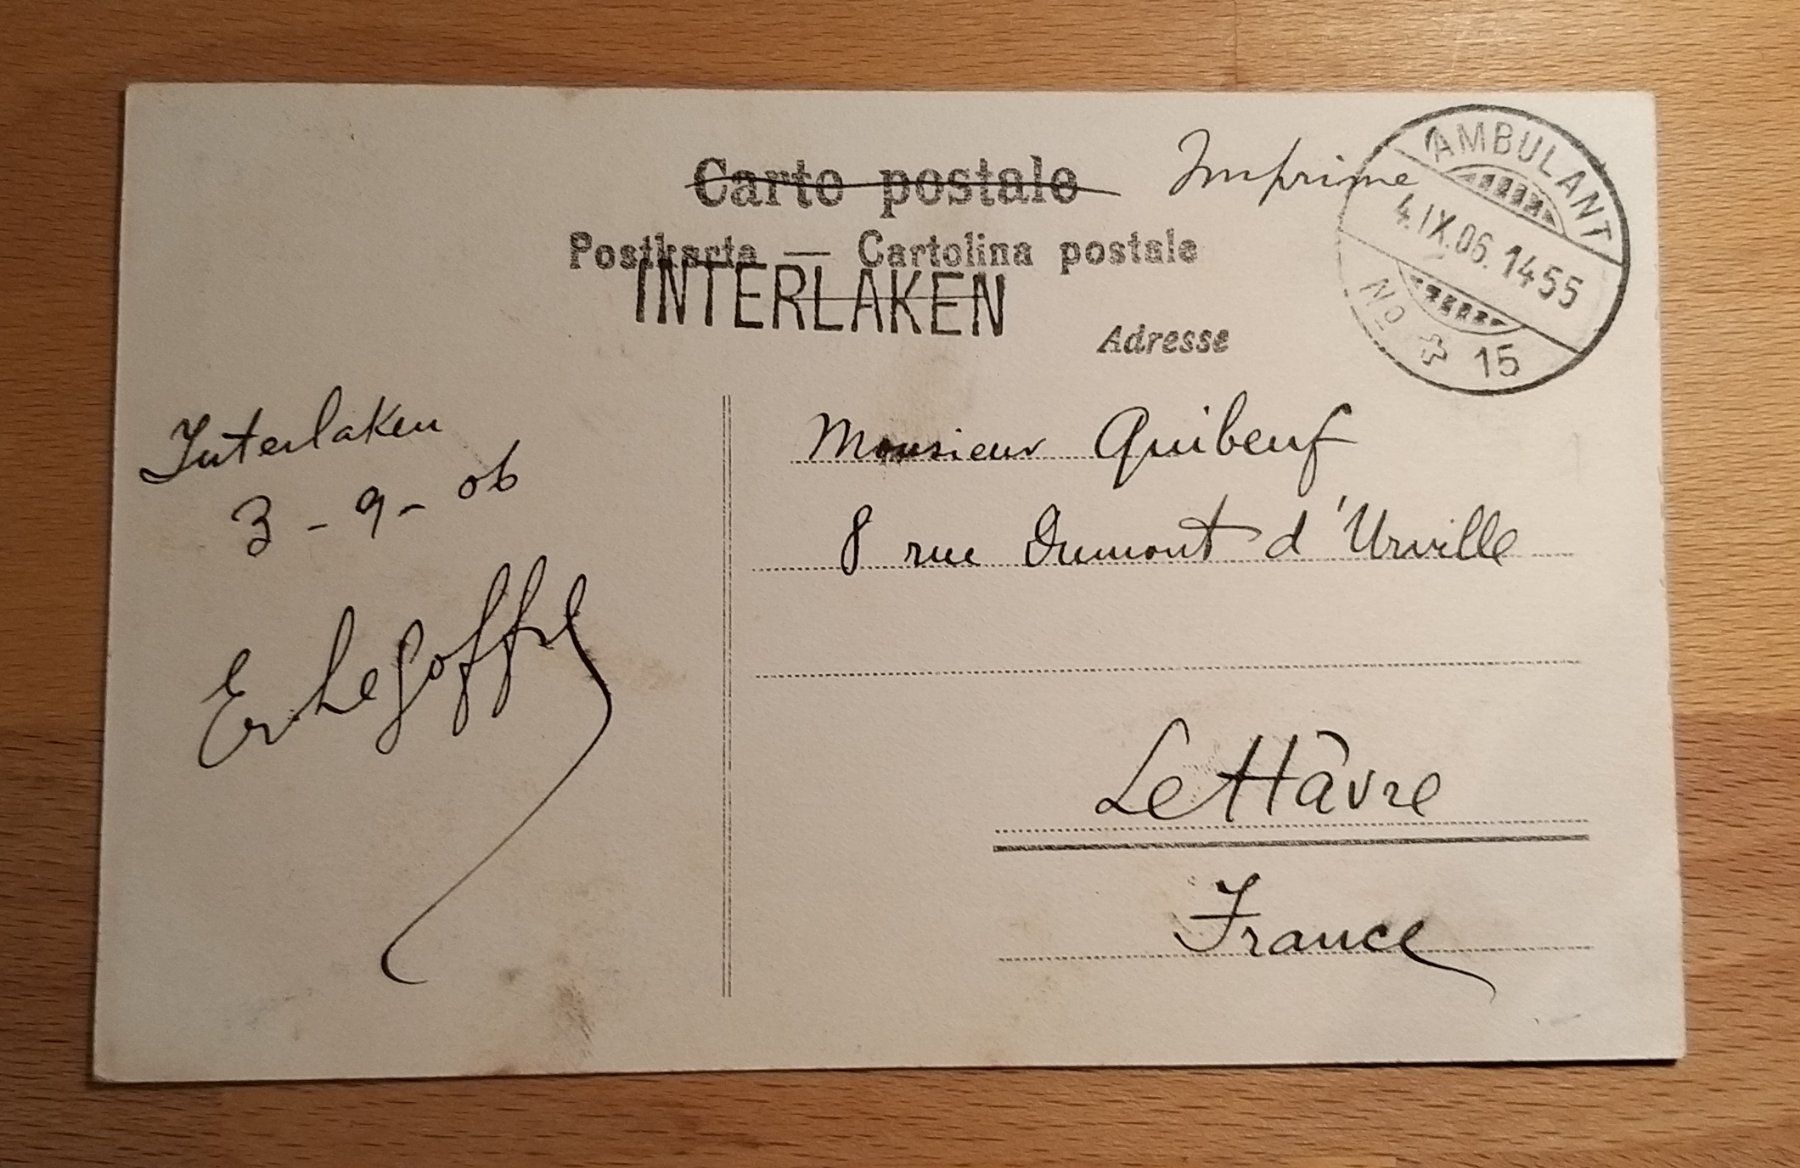 Carte postale Imprime
Postkarte — Cartolina postale
INTERLAKEN
Adresse
AMBULANT
4.IX.06.1455
No 15
Interlaken
3-9-06
Monsieur Quibeuf
8 rue Dumont d'Urville
Le Hâvre
France